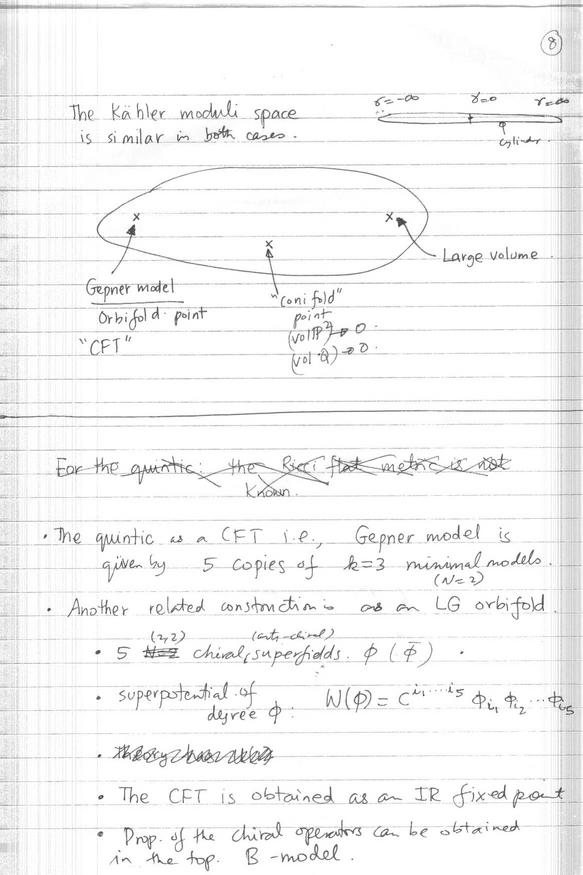 8
The Kähler moduli space
is similar in both cases.
r=-∞ r=0 r=∞
cylinder.
x x
x
Large volume
Gepner model
Orbifold point
"CFT"
"conifold"
point
(vol P²) → 0.
(vol Q) → 0.
For the quintic: the Ricci flat metric is not
known.
• The quintic as a CFT i.e., Gepner model is
given by 5 copies of k=3 minimal models.
(N=2)
• Another related construction is as an LG orbifold.
(2,2) (anti-chiral)
• 5 N=2 chiral, superfields. ϕ (ϕ̄) .
• superpotential of
degree ϕ: W(ϕ) = C^{i₁....i₅} ϕ_{i₁} ϕ_{i₂} ... ϕ_{i₅}
•
• The CFT is obtained as an IR fixed point
• Prop. of the chiral operators can be obtained
in the top. B-model.